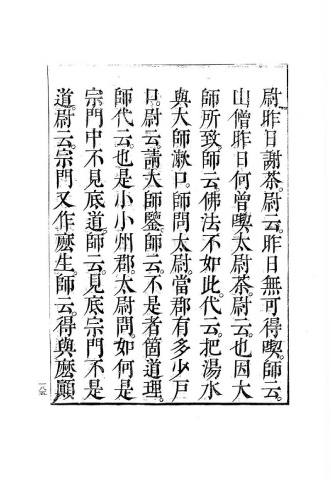 尉昨日謝茶。尉云。昨日無可得喫。師云。
山僧昨日何曾喫太尉茶。尉云。也因大
師所致。師云。佛法不如此。代云。把湯水
與大師漱口。師問太尉。當郡有多少戸
口。尉云。請大師鑒。師云。不是者箇道理。
師代云。也是小小州郡。太尉問。如何是
宗門中不見底道。師云。見底宗門不是
道。尉云。宗門又作麽生。師云。得與麽顢
一八五